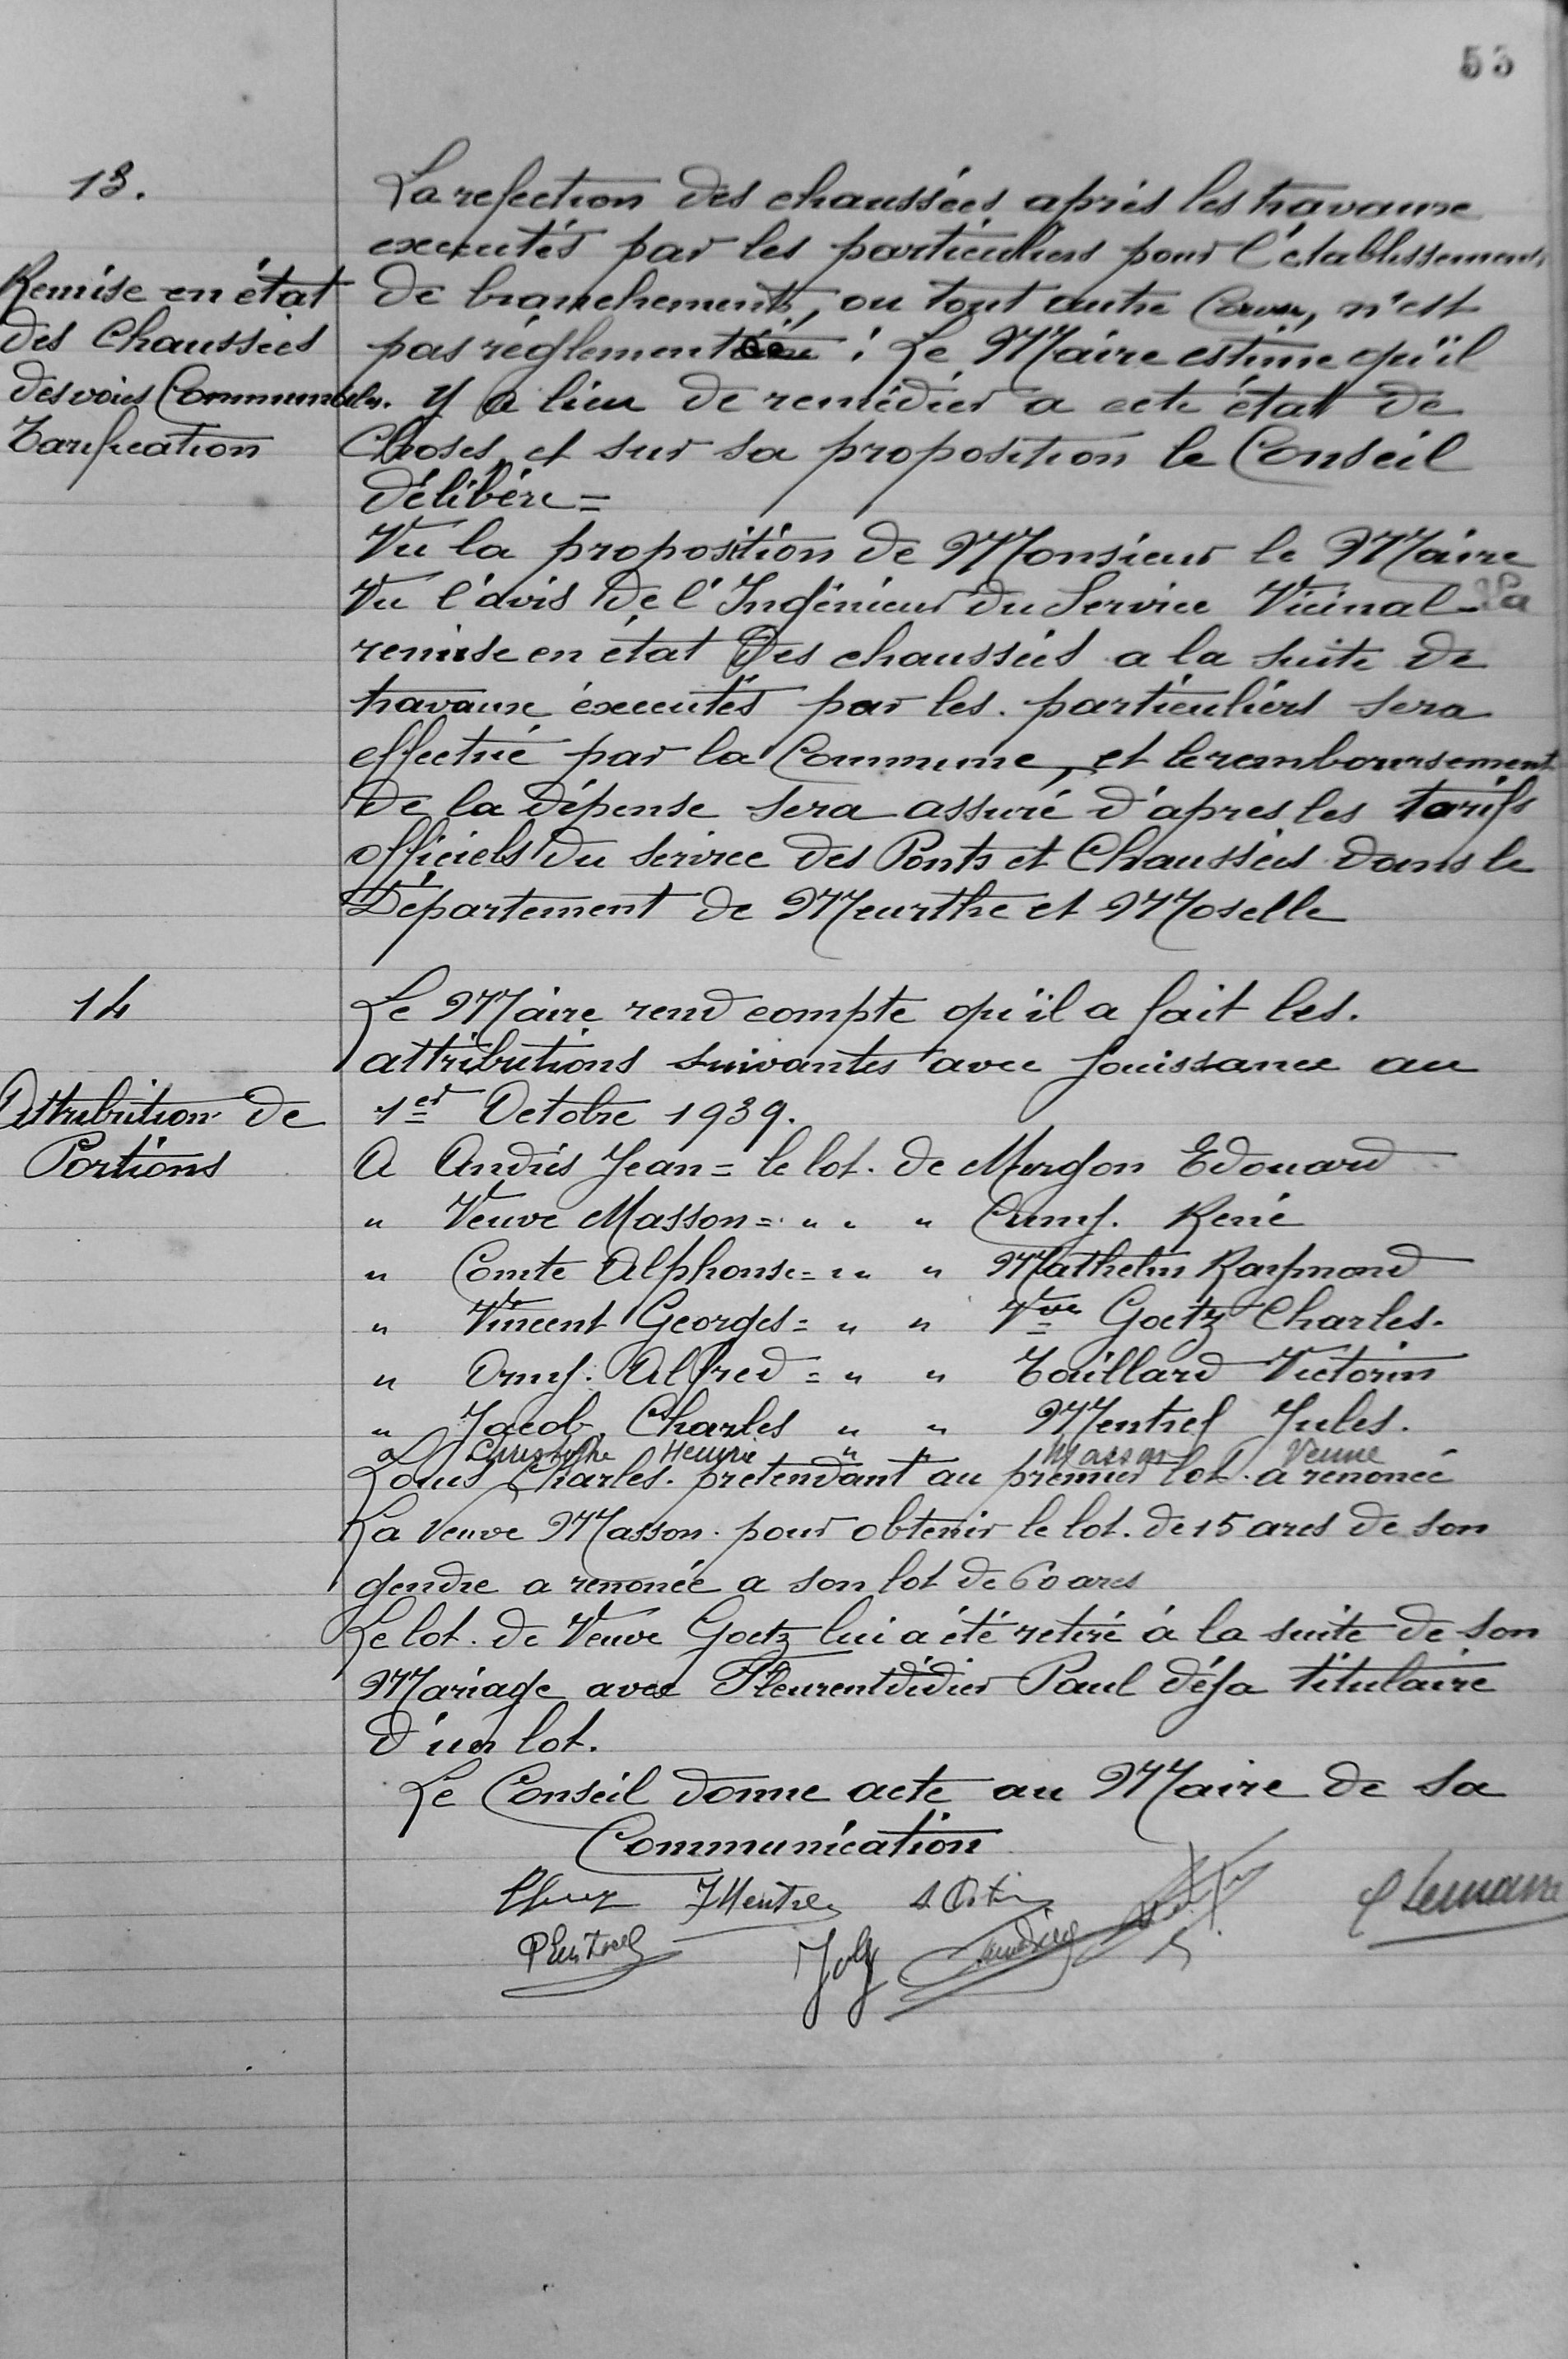 53
13.
Remise en état
des Chaussées
des voies Communales.
Tarification
La refection des chaussées après les travaux
executés par les particuliers pour l'établissement
de branchements, ou tout autre Cause, n'est
pas réglementée : Le Maire estime qu'il
y a lieu de remédier a cete état de
Choses et sur sa proposition le Conseil
délibére =
Vu la proposition de Monsieur le Maire
Vu l'avis de l'Ingénieur du Service Vicinal - La
remise en état des chaussées a la suite de
travaux éxecutés par les particuliers sera
effectué par la Commune, et le remboursement
de la dépense sera assuré d'apres les tarifs
officiels du Service des Ponts et Chaussées dans le
Département de Meurthe et Moselle
14
Attribution de
Portions
Le Maire rend compte qu'il a fait les.
attributions suivantes avec jouissance au
1er Octobre 1939.
A Andrés Jean = le lot. de Morgon Edouard
" Veuve Masson = " " " Cuny. René
" Comte Alphonse = " " " Mathelin Raymond
" Vincent Georges = " " Vve Goetz Charles.
" Orny. Alfred = " " Taillard Victorin
" Jacob. Charles " " Mentrel Jules.
a Christophe Henrie " " Masson Veuve
Louis Charles. pretendant au premier lot. a renoncé
La Veuve Masson. pour obtenir le lot. de 15 ares de son
gendre a renonée a son lot de 60 ares
Le lot. de Veuve Goetz lui a été retiré à la suite de son
Mariage avec Fleurentdidier Paul déja titulaire
d'un lot.
Le Conseil donne acte au Maire de sa
Communication
JMentrel
Joly
C Lemaire